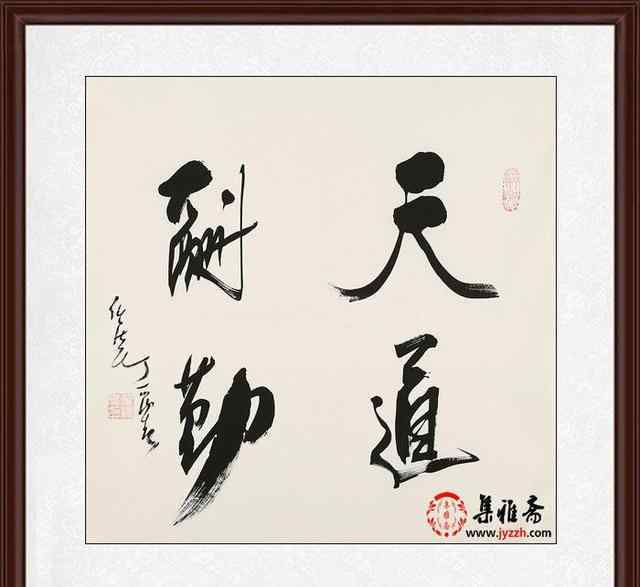 天道
酬勤
集雅斋
www.jyzzh.com